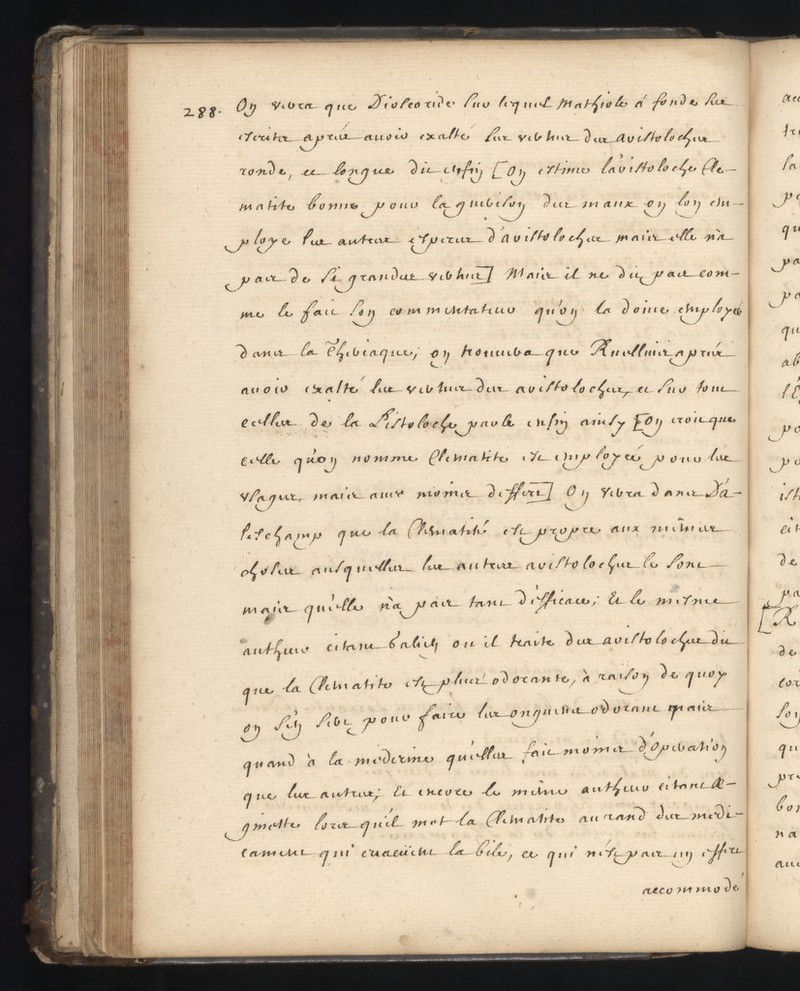 288. On verra que Dioscoride sur lequel Mathiole a fondé ses
escrits apres avoir exalté les vertus des aristoloches
ronde, et longue dit enfin [On estime l'aristoloche Cle-
matite bonne pour la guerison des maux on l'on em-
ploye les autres especes d'aristoloches mais elle n'a
pas de si grandes vertus] Mais il ne dit pas com-
me le fait son commentateur qu'on la doive employer
dans la Theriaque; on trouvera que Ruellius apres
avoir exalté les vertus des aristoloches, et sur tout
celles de la Pistoloche parle enfin ainsy [On croit que
celle qu'on nomme Clematite est employée pour les
usages, mais avec moins d'effets] On verra dans Da-
leschamp que la Clematite est propre aux mêmes
choses ausquelles les autres aristoloches le sont
mais qu'elle n'a pas tant d'efficace; Et le mesme
autheur citant Galien ou il traite des aristoloches dit
que la Clematite est plus odorante, à raison de quoy
on s'en sert pour faire les onguents odorans mais
quand à la medecine qu'elles fait moins d'operation
que les autres; Et encore le même autheur citant Æ-
ginette lors qu'il met la Clematite au rand des medi-
caments qui evacuent la bile, ce qui n'est pas un effet
accommodé